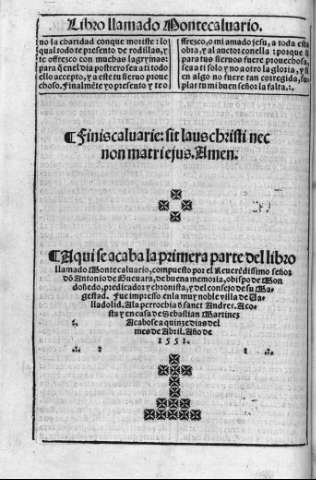 Libro llamado Montecaluario.
no la charidad conque moriste: lo
qual todo te presento de rodillas, y
te offresco con muchas lagrymas:
para q̃ en el dia postrero sea a ti todo
ello accepto, y a este tu sieruo proue
choso. Finalmẽte yo presento y te o
ffresco, o mi amado jesu, a toda esta
obra, y al auctor con ella: porque a
para tus sieruos fuere prouechosa,
sea a ti solo y no a otro la gloria, y si
en algo no fuere tan corregida, su-
plas tu mi buen señor la falta.
¶Finis caluarie: sit laus christi nec
non matri ejus. Amen.
¶Aqui se acaba la primera parte del libro
llamado Montecaluario, compuesto por el Reuerẽdissimo señor
dõ Antonio de Gueuara, de buena memoria, obispo de Mon
doñedo, predicador y chronista, y del consejo de su Ma-
gestad. Fue impresso en la muy noble villa de Ua-
lladolid. A la perrochia õ sanct Andres. A co-
sta y en casa de Sebastian Martinez
Acabose a quinze dias del
mes de Abril. Año de
1551.